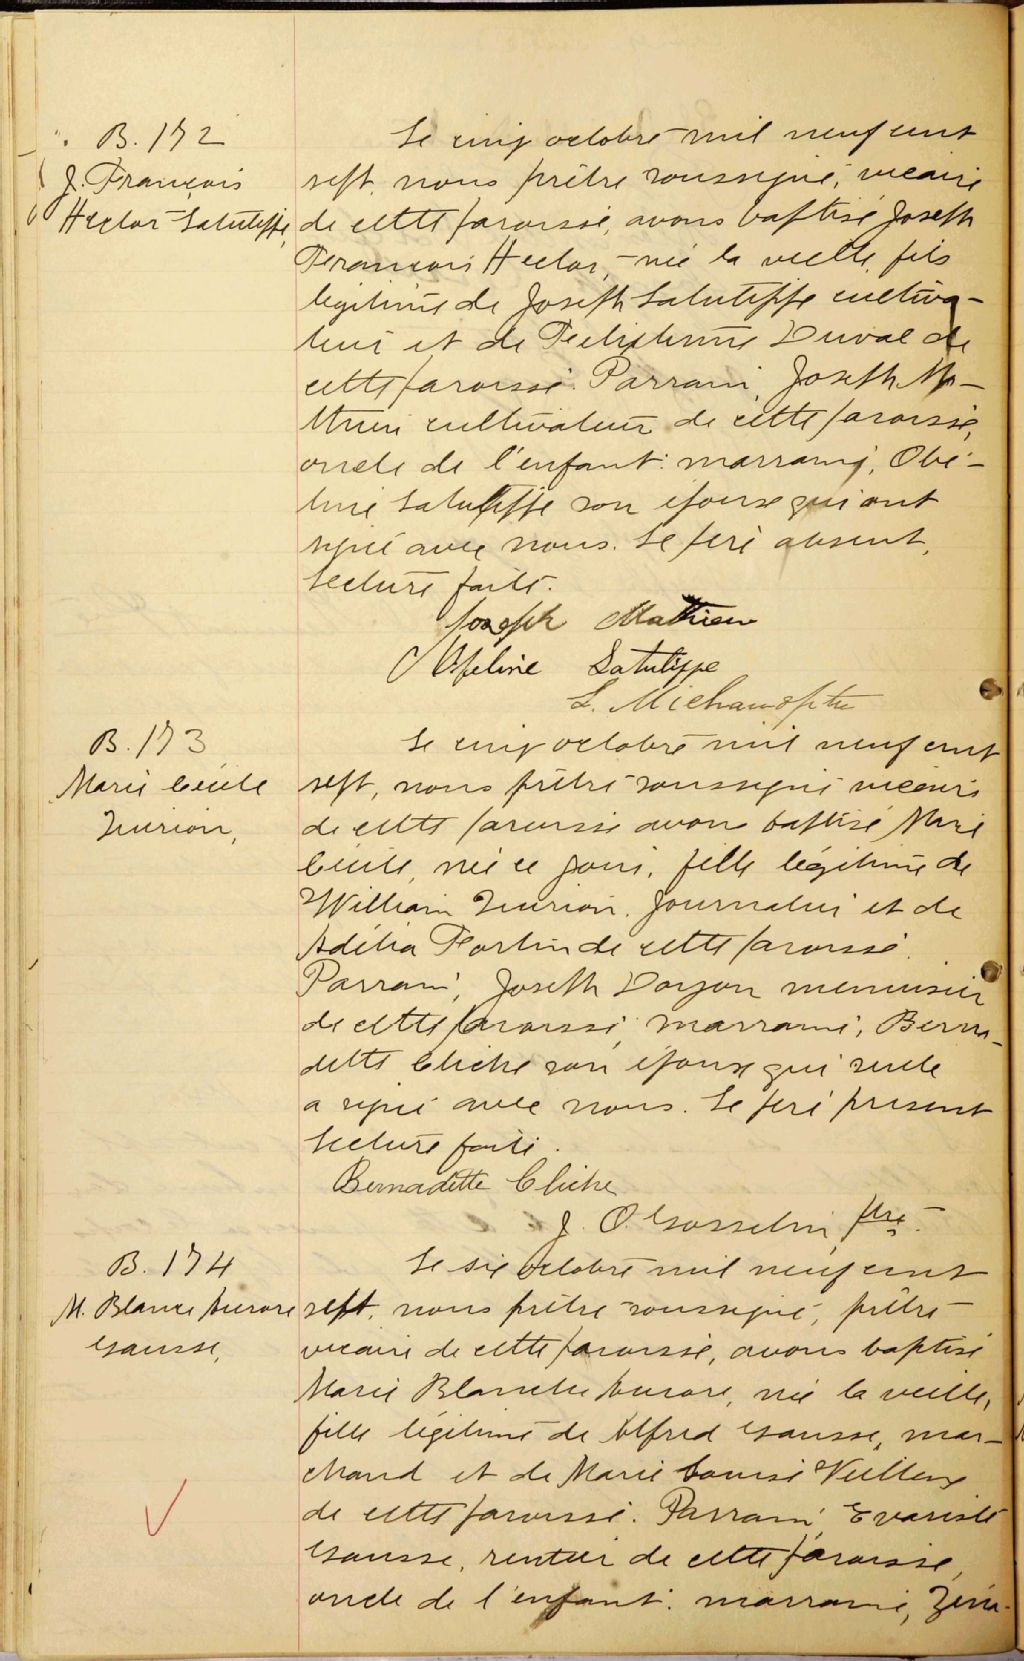 B. 172
J. François
Hector Latulippe,
Le cinq octobre mil neuf cent
sept, nous prêtre soussigné, vicaire
de cette paroisse, avons baptisé Joseph
François Hector, né la veille, fils
légitime de Joseph Latulippe cultiva-
teur et de Duval de
cette paroisse. Parrain, Joseph Ma-
thieu cultivateur de cette paroisse,
oncle de l'enfant: marraine, Obé-
line Latulippe son épouse qui ont
signé avec nous. Le père absent,
Lecture faite.
Joseph Mathieu
Latulippe
L. Michaud ptre
B. 173
Marie Cécile
Turion,
Le cinq octobre mil neuf cent
sept, nous prêtre soussigné vicaire
de cette paroisse avons baptisé Marie
Cécile, née ce jour, fille légitime de
William Turion, journalier et de
Adélia Fortin de cette paroisse.
Parrain, Joseph Doyon menuisier
de cette paroisse, marraine, Berna-
dette Cliche son épouse qui seule
a signé avec nous. Le père présent
Lecture faite.
Bernadette Cliche
J. O. Gosselin, ptre.
B. 174
M. Blanche Aurore
Gousse,
Le six octobre mil neuf cent
sept, nous prêtre soussigné, prêtre
vicaire de cette paroisse, avons baptisé
Marie Blanche Aurore, née la veille,
fille légitime de Alfred Gousse, mar-
chand et de Marie Louise Veilleux
de cette paroisse. Parrain, Evariste
Gousse, rentier de cette paroisse,
oncle de l'enfant: marraine, Zéna-